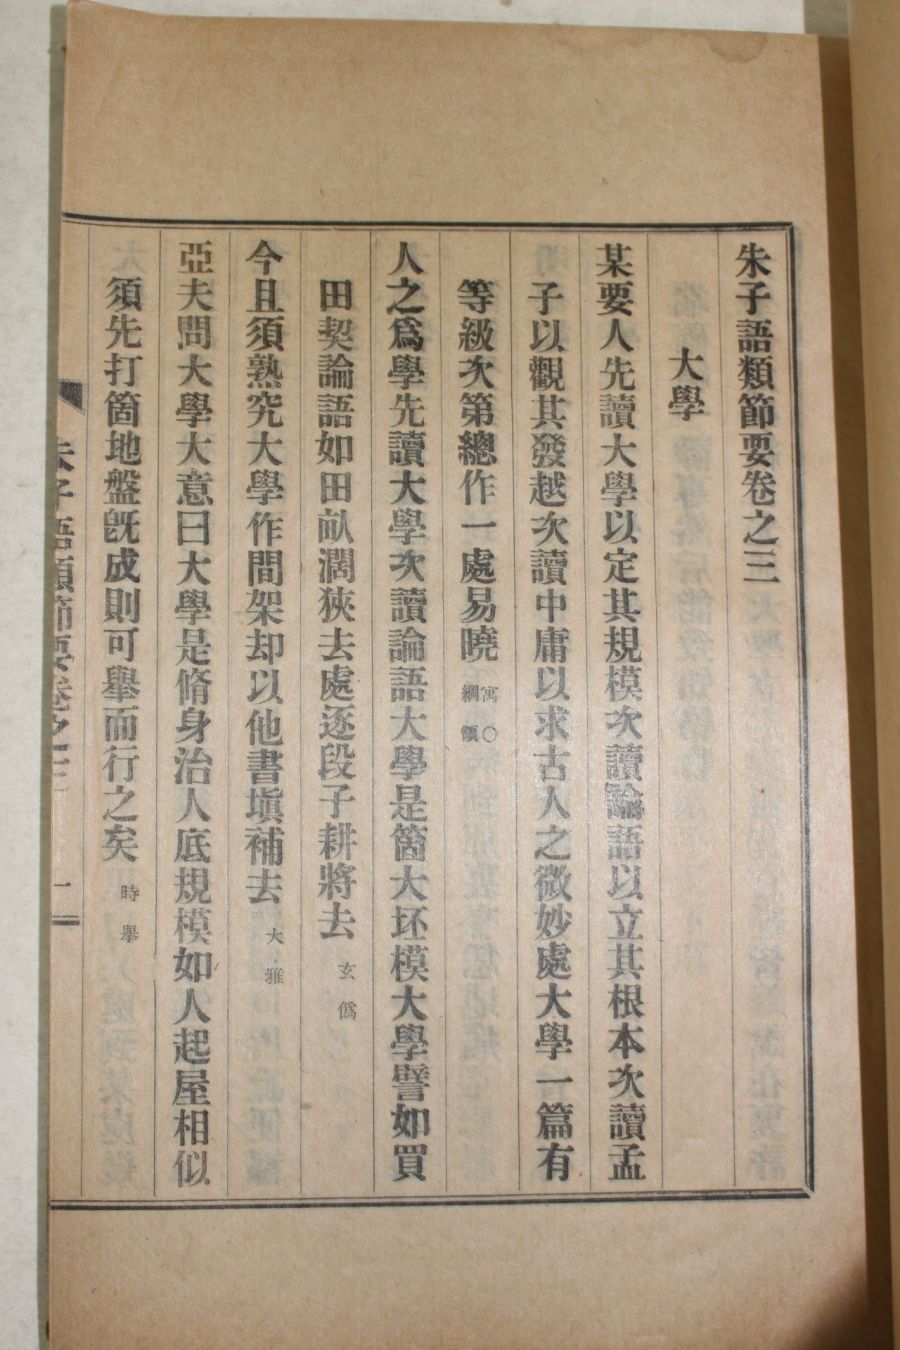 朱子語類節要卷之三
大學
某要人先讀大學以定其規模次讀論語以立其根本次讀孟
子以觀其發越次讀中庸以求古人之微妙處大學一篇有
等級次第總作一處易曉寓○綱領
人之爲學先讀大學次讀論語大學是箇大坯模大學譬如買
田契論語如田畝濶狹去處逐段子耕將去玄僞
今且須熟究大學作間架却以他書塡補去大雅
亞夫問大學大意曰大學是脩身治人底規模如人起屋相似
須先打箇地盤旣成則可擧而行之矣時擧
朱子語類節要卷之三 一